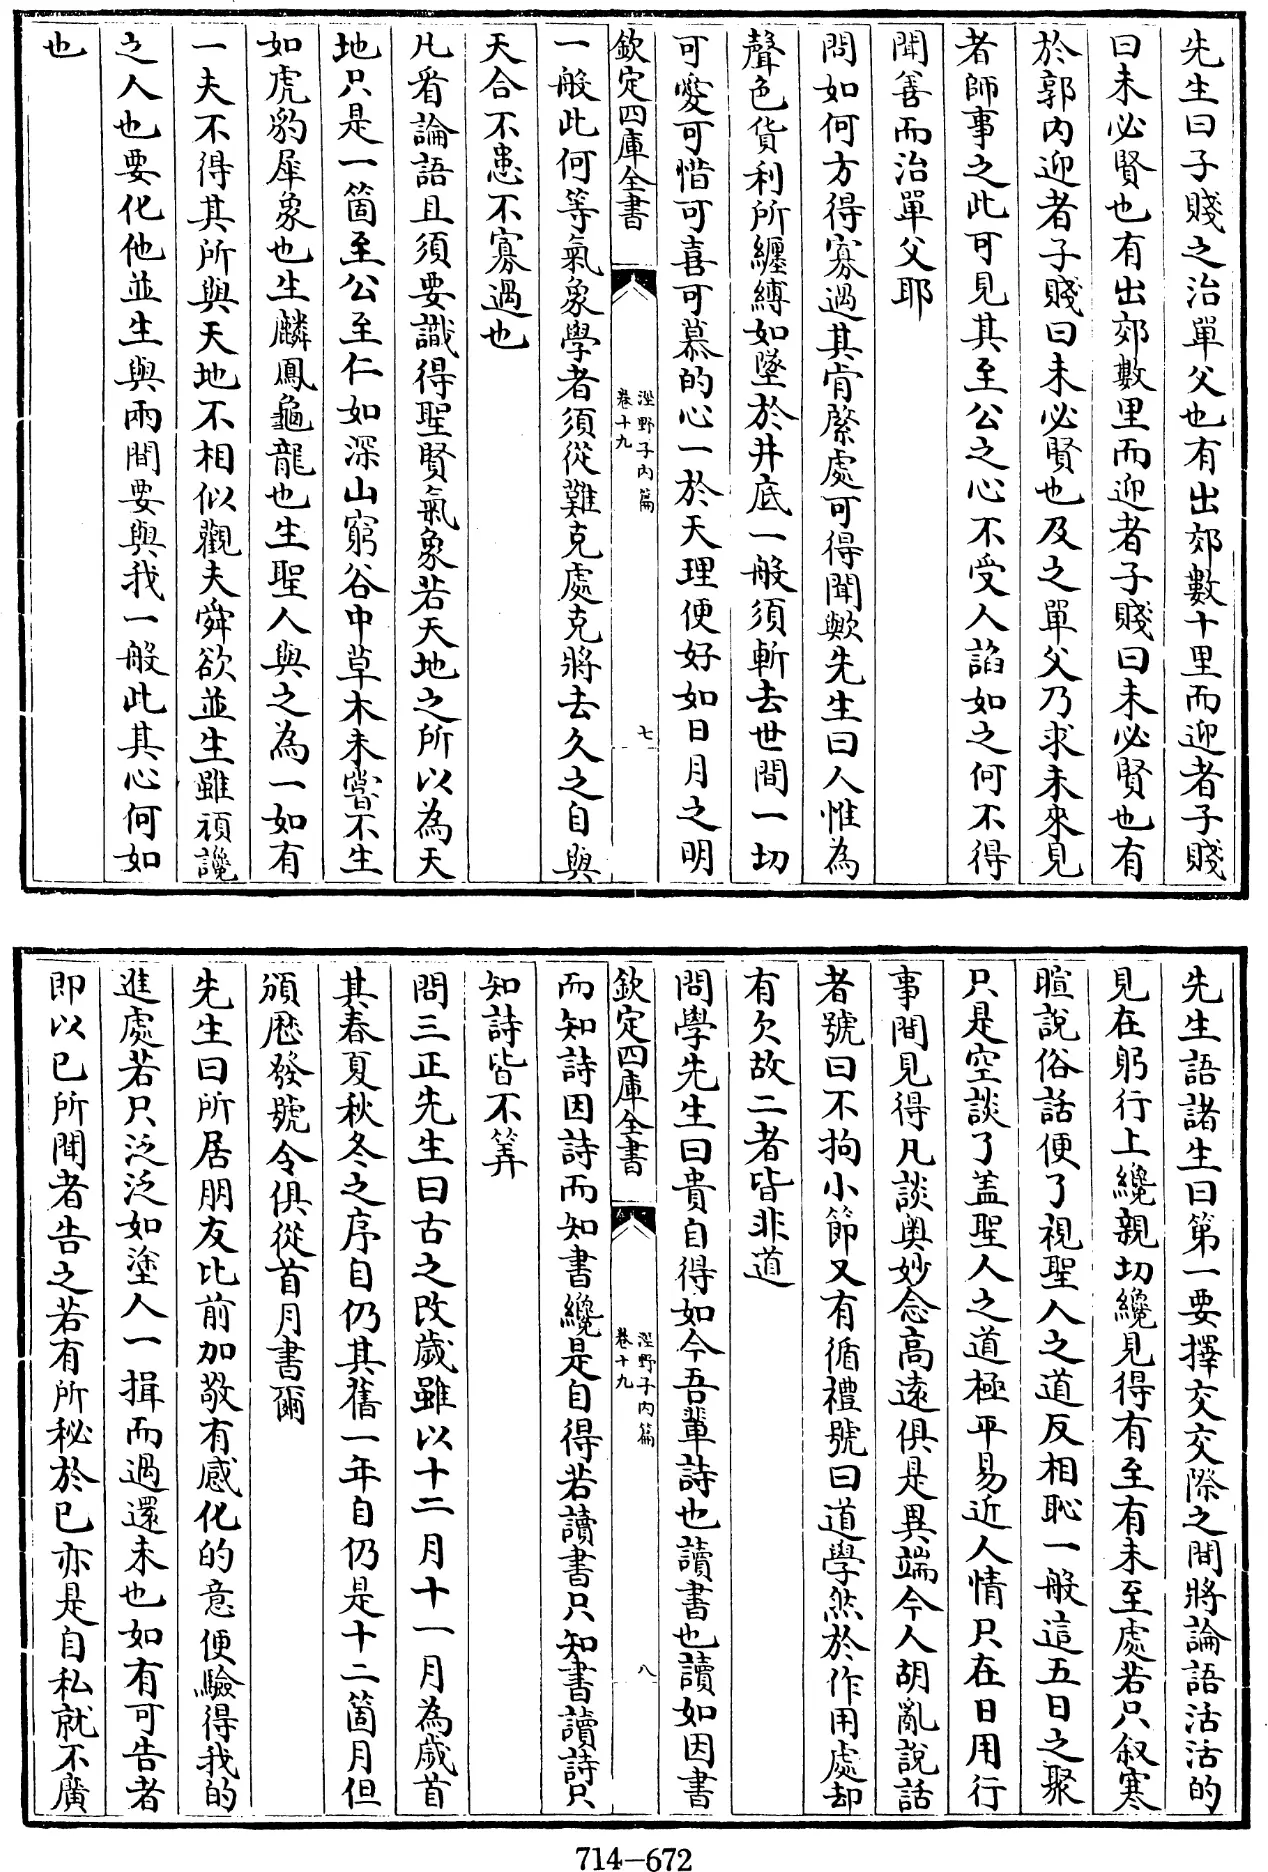 先生曰子賤之治單父也有出郊數十里而迎者子賤
曰未必賢也有出郊數里而迎者子賤曰未必賢也有
於郭内迎者子賤曰未必賢也及之單父乃求未來見
者師事之此可見其至公之心不受人諂如之何不得
聞善而治單父耶
問如何方得寡過其肯綮處可得聞歟先生曰人惟為
聲色貨利所纒縛如墜於井底一般須斬去世間一切
可愛可惜可喜可慕的心一於天理便好如日月之明
欽定四庫全書
涇野子内篇
卷十九
七
一般此何等氣象學者須從難克處克將去久之自與
天合不患不寡過也
凡看論語且須要識得聖賢氣象若天地之所以為天
地只是一箇至公至仁如深山窮谷中草木未嘗不生
如虎豹犀象也生麟鳳龜龍也生聖人與之為一如有
一夫不得其所與天地不相似觀夫舜欲並生雖頑讒
之人也要化他並生與兩間要與我一般此其心何如
也
先生語諸生曰第一要擇交交際之間將論語活活的
見在躬行上纔親切纔見得有至有未至處若只叙寒
暄說俗話便了視聖人之道反相恥一般這五日之聚
只是空談了盖聖人之道極平易近人情只在日用行
事間見得凡談奥妙念高遠俱是異端今人胡亂說話
者號曰不拘小節又有循禮號曰道學然於作用處却
有欠故二者皆非道
問學先生曰貴自得如今吾軰詩也讀書也讀如因書
欽定四庫全書
涇野子内篇
卷十九
八
而知詩因詩而知書纔是自得若讀書只知書讀詩只
知詩皆不筭
問三正先生曰古之改歲雖以十二月十一月為歲首
其春夏秋冬之序自仍其舊一年自仍是十二箇月但
頒厯發號令俱從首月書爾
先生曰所居朋友比前加敬有感化的意便驗得我的
進處若只泛泛如塗人一揖而過還未也如有可告者
即以已所聞者告之若有所秘於已亦是自私就不廣
714—672